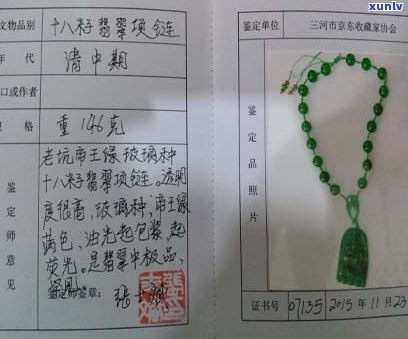 xunlv
.com
文物品别 十八籽翡翠项链
年代 清中期
口或作者
规格 重146克
鉴定师意见
老坑帝王绿玻璃种
十八籽翡翠项链。透明
度很高,玻璃种,帝王绿
满色,油光起包浆,起
荧光。是翡翠中极品,
鉴定师签章:
鉴定单位 三河市京东收藏家协会
鉴定品照片
证书号 07135 2015年11月23